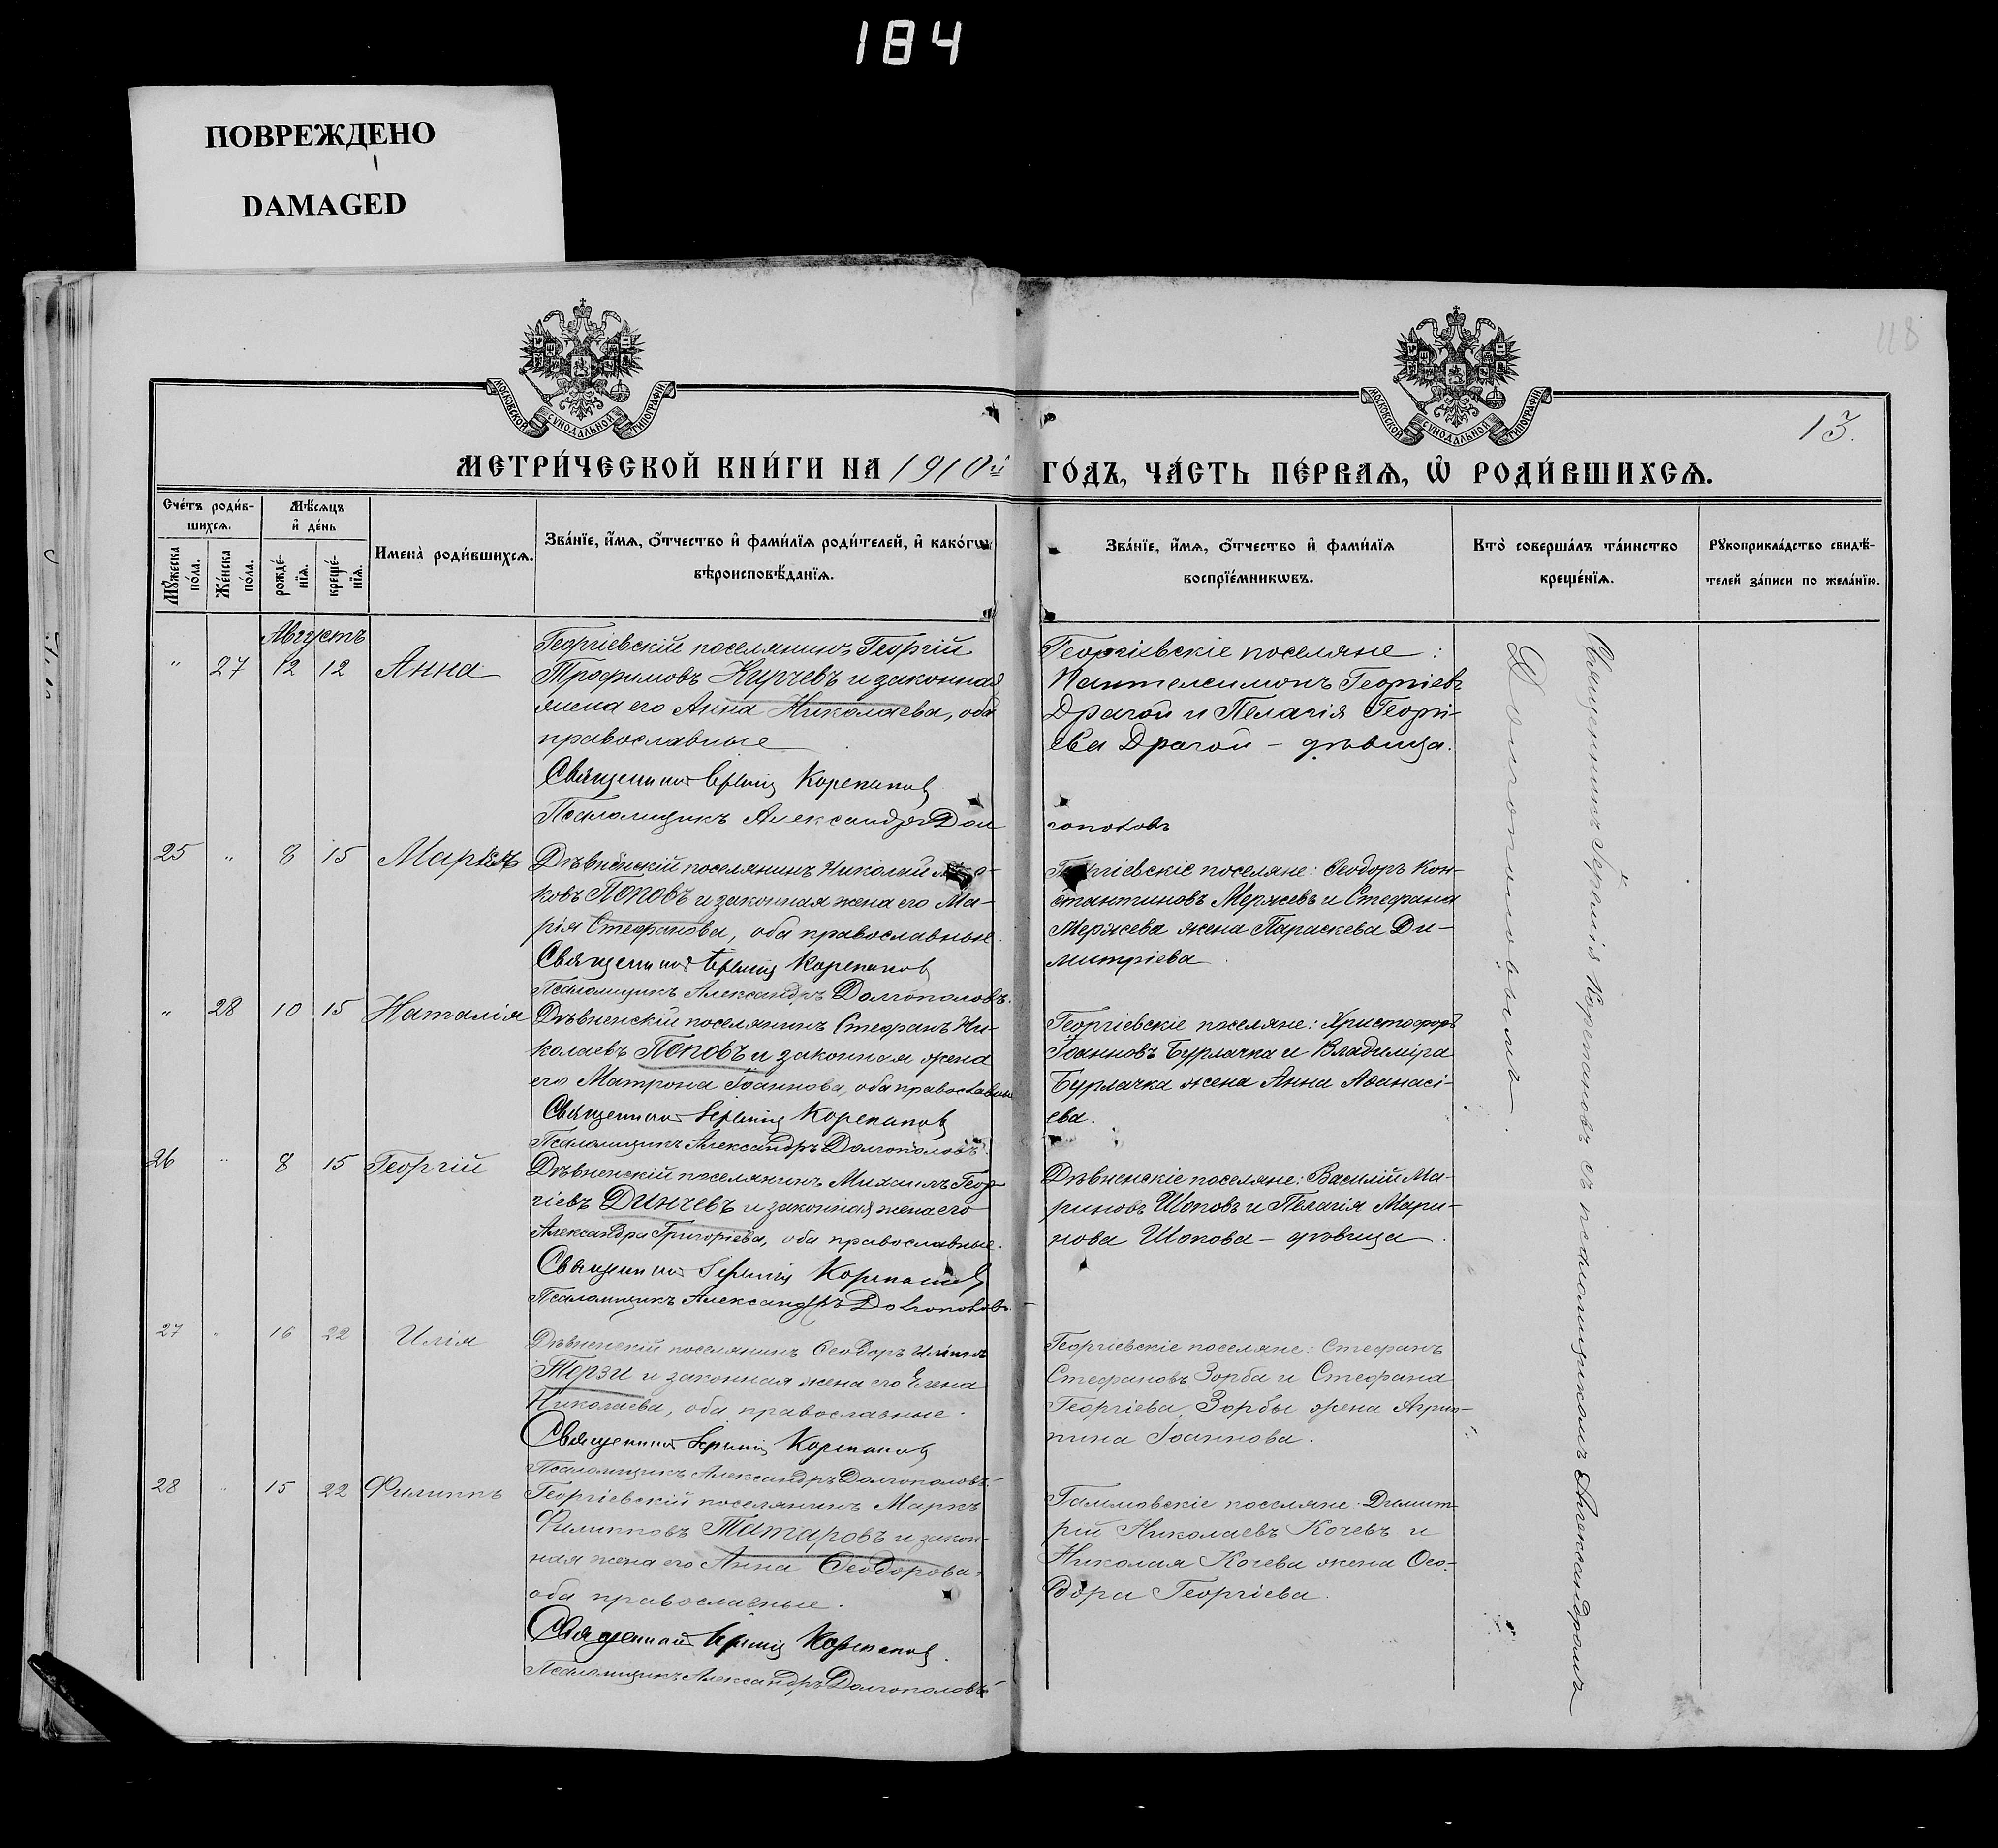 184
ПОВРЕЖДЕНО
DAMAGED
118
МОСКОВСКОЙ СѴНОДАЛЬНОЙ ТИПОГРАФІИ
МОСКОВСКОЙ СѴНОДАЛЬНОЙ ТИПОГРАФІИ
13.
МЕТРИ́ЧЕСКОЙ КНИ́ГИ НА 1910й ГО́ДЪ, ЧА́СТЬ ПЕ́РВАѦ, Ѡ҆ РОДИ́ВШИХСѦ.
Сче́тъ роди́в-
шихсѧ.
Мѣ́сѧцъ
и҆ де́нь
Мꙋ́жеска
по́ла.
Же́нска
по́ла.
рожде́-
нїѧ.
креще́-
нїѧ.
Имена̀ роди́вшихсѧ.
Зва́нїе, и҆́мѧ, о҆́тчество и҆ фами́лїѧ роди́телей, и҆ како́гѡ
вѣроисповѣ́данїѧ.
Зва́нїе, и҆́мѧ, о҆́тчество и҆ фами́лїѧ
воспрїе́мникѡвъ.
Кто̀ соверша́лъ та́инство
креще́нїѧ.
Рꙋкоприкла́дство свидѣ́-
телей за́писи по жела́нїю.
Августъ
" 27 12 12 Анна
Георгіевскій поселянинъ Георгій
Трофимовъ Курчевъ и законная
жена его Анна Николаева, оба
православные
Священникъ Корепановъ
Псаломщикъ Александръ Дол
Георгіевскіе поселяне:
Пантелеимонъ Георгіевъ
Драгой и Пелагія Георгі-
ева Драгой – дѣвица.
гополовъ
25 " 8 15 Маркъ
Дѣвненскій поселянинъ Николай
ковъ Поповъ и законная жена его Ма-
рія Стефанова, оба православные.
Священникъ Корепановъ
Псаломщикъ Александръ Долгополовъ.
Георгіевскіе поселяне: Ѳеодоръ Кон-
стантиновъ Мержевъ и Стефана
Мержева жена Параскева Ди-
митріева
" 28 10 15 Наталія
Дѣвненскій поселянинъ Стефанъ Ни-
колаевъ Поповъ и законная жена
его Матрона Іоаннова, оба православные
Священникъ Корепановъ
Псаломщикъ Александръ Долгополовъ
Георгіевскіе поселяне: Христофоръ
Іоанновъ Бурлачка и Владиміра
Бурлачка жена Анна Аѳанасі-
ева.
26 " 8 15 Георгій
Дѣвненскій поселянинъ Михаилъ Геор-
гіевъ Динчевъ и законная жена его
Александра Григоріева, оба православные.
Священникъ Корепановъ
Псаломщикъ Александръ Долгополовъ.
Дѣвненскіе поселяне: Василій Ма-
риновъ Шоповъ и Пелагія Мари-
нова Шопова – дѣвица
27 " 16 22 Илія
Дѣвненскій поселянинъ Ѳеодоръ Иліинъ
Терзи и законная жена его Елена
Николаева, оба православные.
Священникъ Корепановъ
Псаломщикъ Александръ Долгополовъ.
Георгіевскіе поселяне: Стефанъ
Стефановъ Зорба и Стефана
Георгіева Зорбы жена Агрип-
пина Іоаннова.
28 " 15 22 Филиппъ
Георгіевскій поселянинъ Маркъ
Филипповъ Татаровъ и закон-
ная жена его Анна Ѳеодорова,
оба православные.
Священникъ Корепановъ.
Псаломщикъ Александръ Долгополовъ
поселяне: Димит-
рій Николаевъ Кочевъ и
Николая Кочева жена Ѳео-
дора Георгіева.
Священникъ Корепановъ съ псаломщикомъ Александромъ
Долгополовымъ